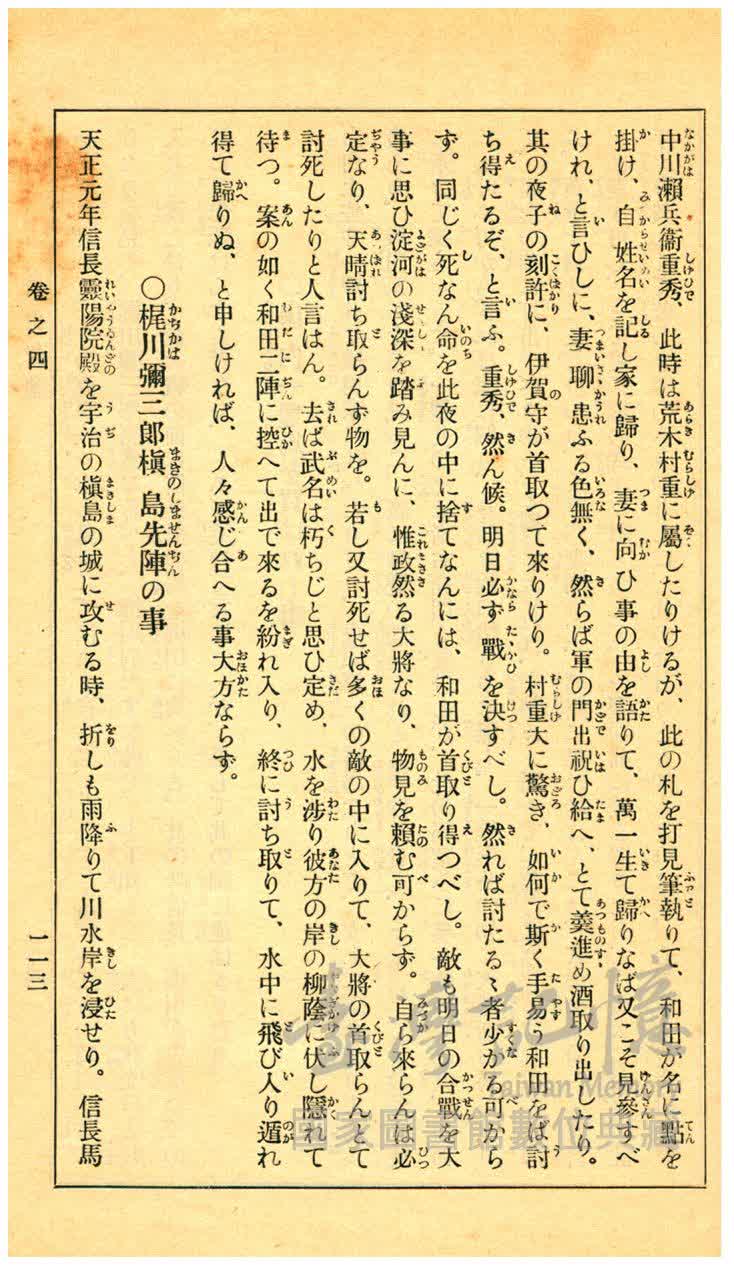 中川瀨兵衞重秀、此時は荒木村重に屬したりけるが、此の札を打見筆執りて、和田が名に點を
掛け、自姓名を記し家に歸り、妻に向ひ事の由を語りて、萬一生て歸りなば又こそ見參すべ
けれ、と言ひしに、妻聊患ふる色無く、然らば軍の門出祝ひ給へ、とて羹進め酒取り出したり。
其の夜子の刻許に、伊賀守が首取つて來りけり。村重大に驚き、如何で斯く手易う和田をば討
ち得たるぞ、と言ふ。重秀、然ん候。明日必ず戰を決すべし。然れば討たるゝ者少かる可から
ず。同じく死なん命を此夜の中に捨てなんには、和田が首取り得つべし。敵も明日の合戰を大
事に思ひ淀河の淺深を踏み見んに、惟政然る大將なり、物見を賴む可からず。自ら來らんは必
定なり、天晴討ち取らんず物を。若し又討死せば多くの敵の中に入りて、大將の首取らんとて
討死したりと人言はん。去ば武名は朽ちじと思ひ定め、水を涉り彼方の岸の柳蔭に伏し隱れて
待つ。案の如く和田二陣に控へて出で來るを紛れ入り、終に討ち取りて、水中に飛び入り遁れ
得て歸りぬ、と申しければ、人々感じ合へる事大方ならず。
〇梶川彌三郎槇島先陣の事
天正元年信長靈陽院殿を宇治の槇島の城に攻むる時、折しも雨降りて川水岸を浸せり。信長馬
卷之四
一一三
臺灣記憶
Taiwan Memory
國家圖書館數位典藏